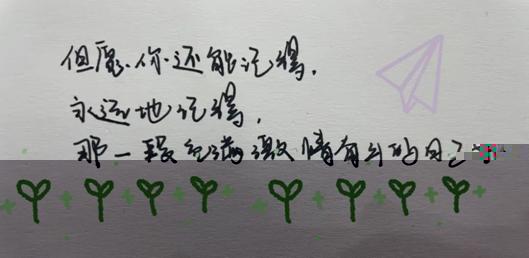 但愿你还能记得,
永远地记得,
那一段充满激情有过的日子